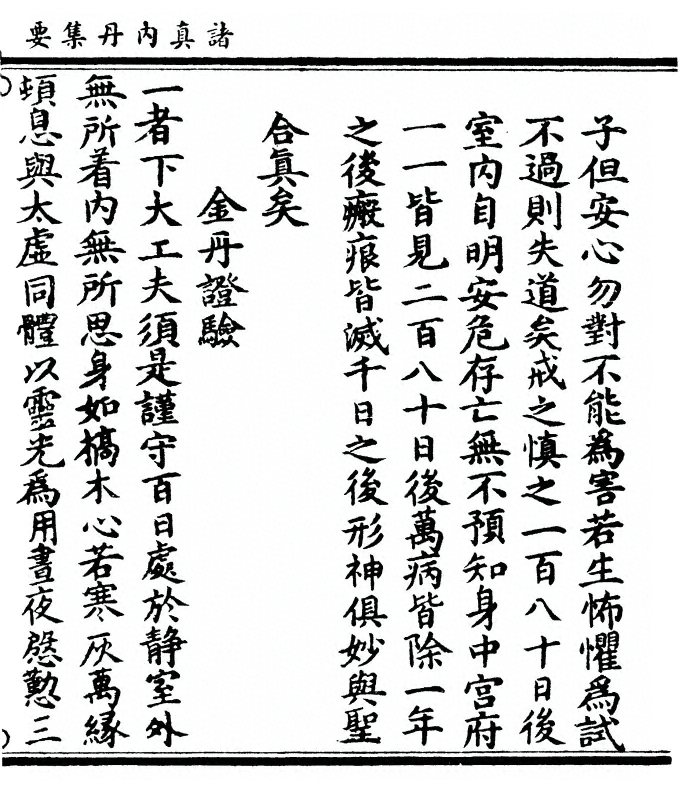 諸真内丹集要
子但安心勿對不能為害若生怖懼爲試
不過則失道矣戒之慎之一百八十日後
室内自明安危存亡無不預知身中宫府
一一皆見二百八十日後萬病皆除一年
之後瘢痕皆滅千日之後形神俱妙與聖
合真矣
金丹證驗
一者下大工夫須是謹守百日處於静室外
無所着内無所思身如槁木心若寒灰萬縁
頓息與太虚同體以靈光爲用晝夜慇懃三